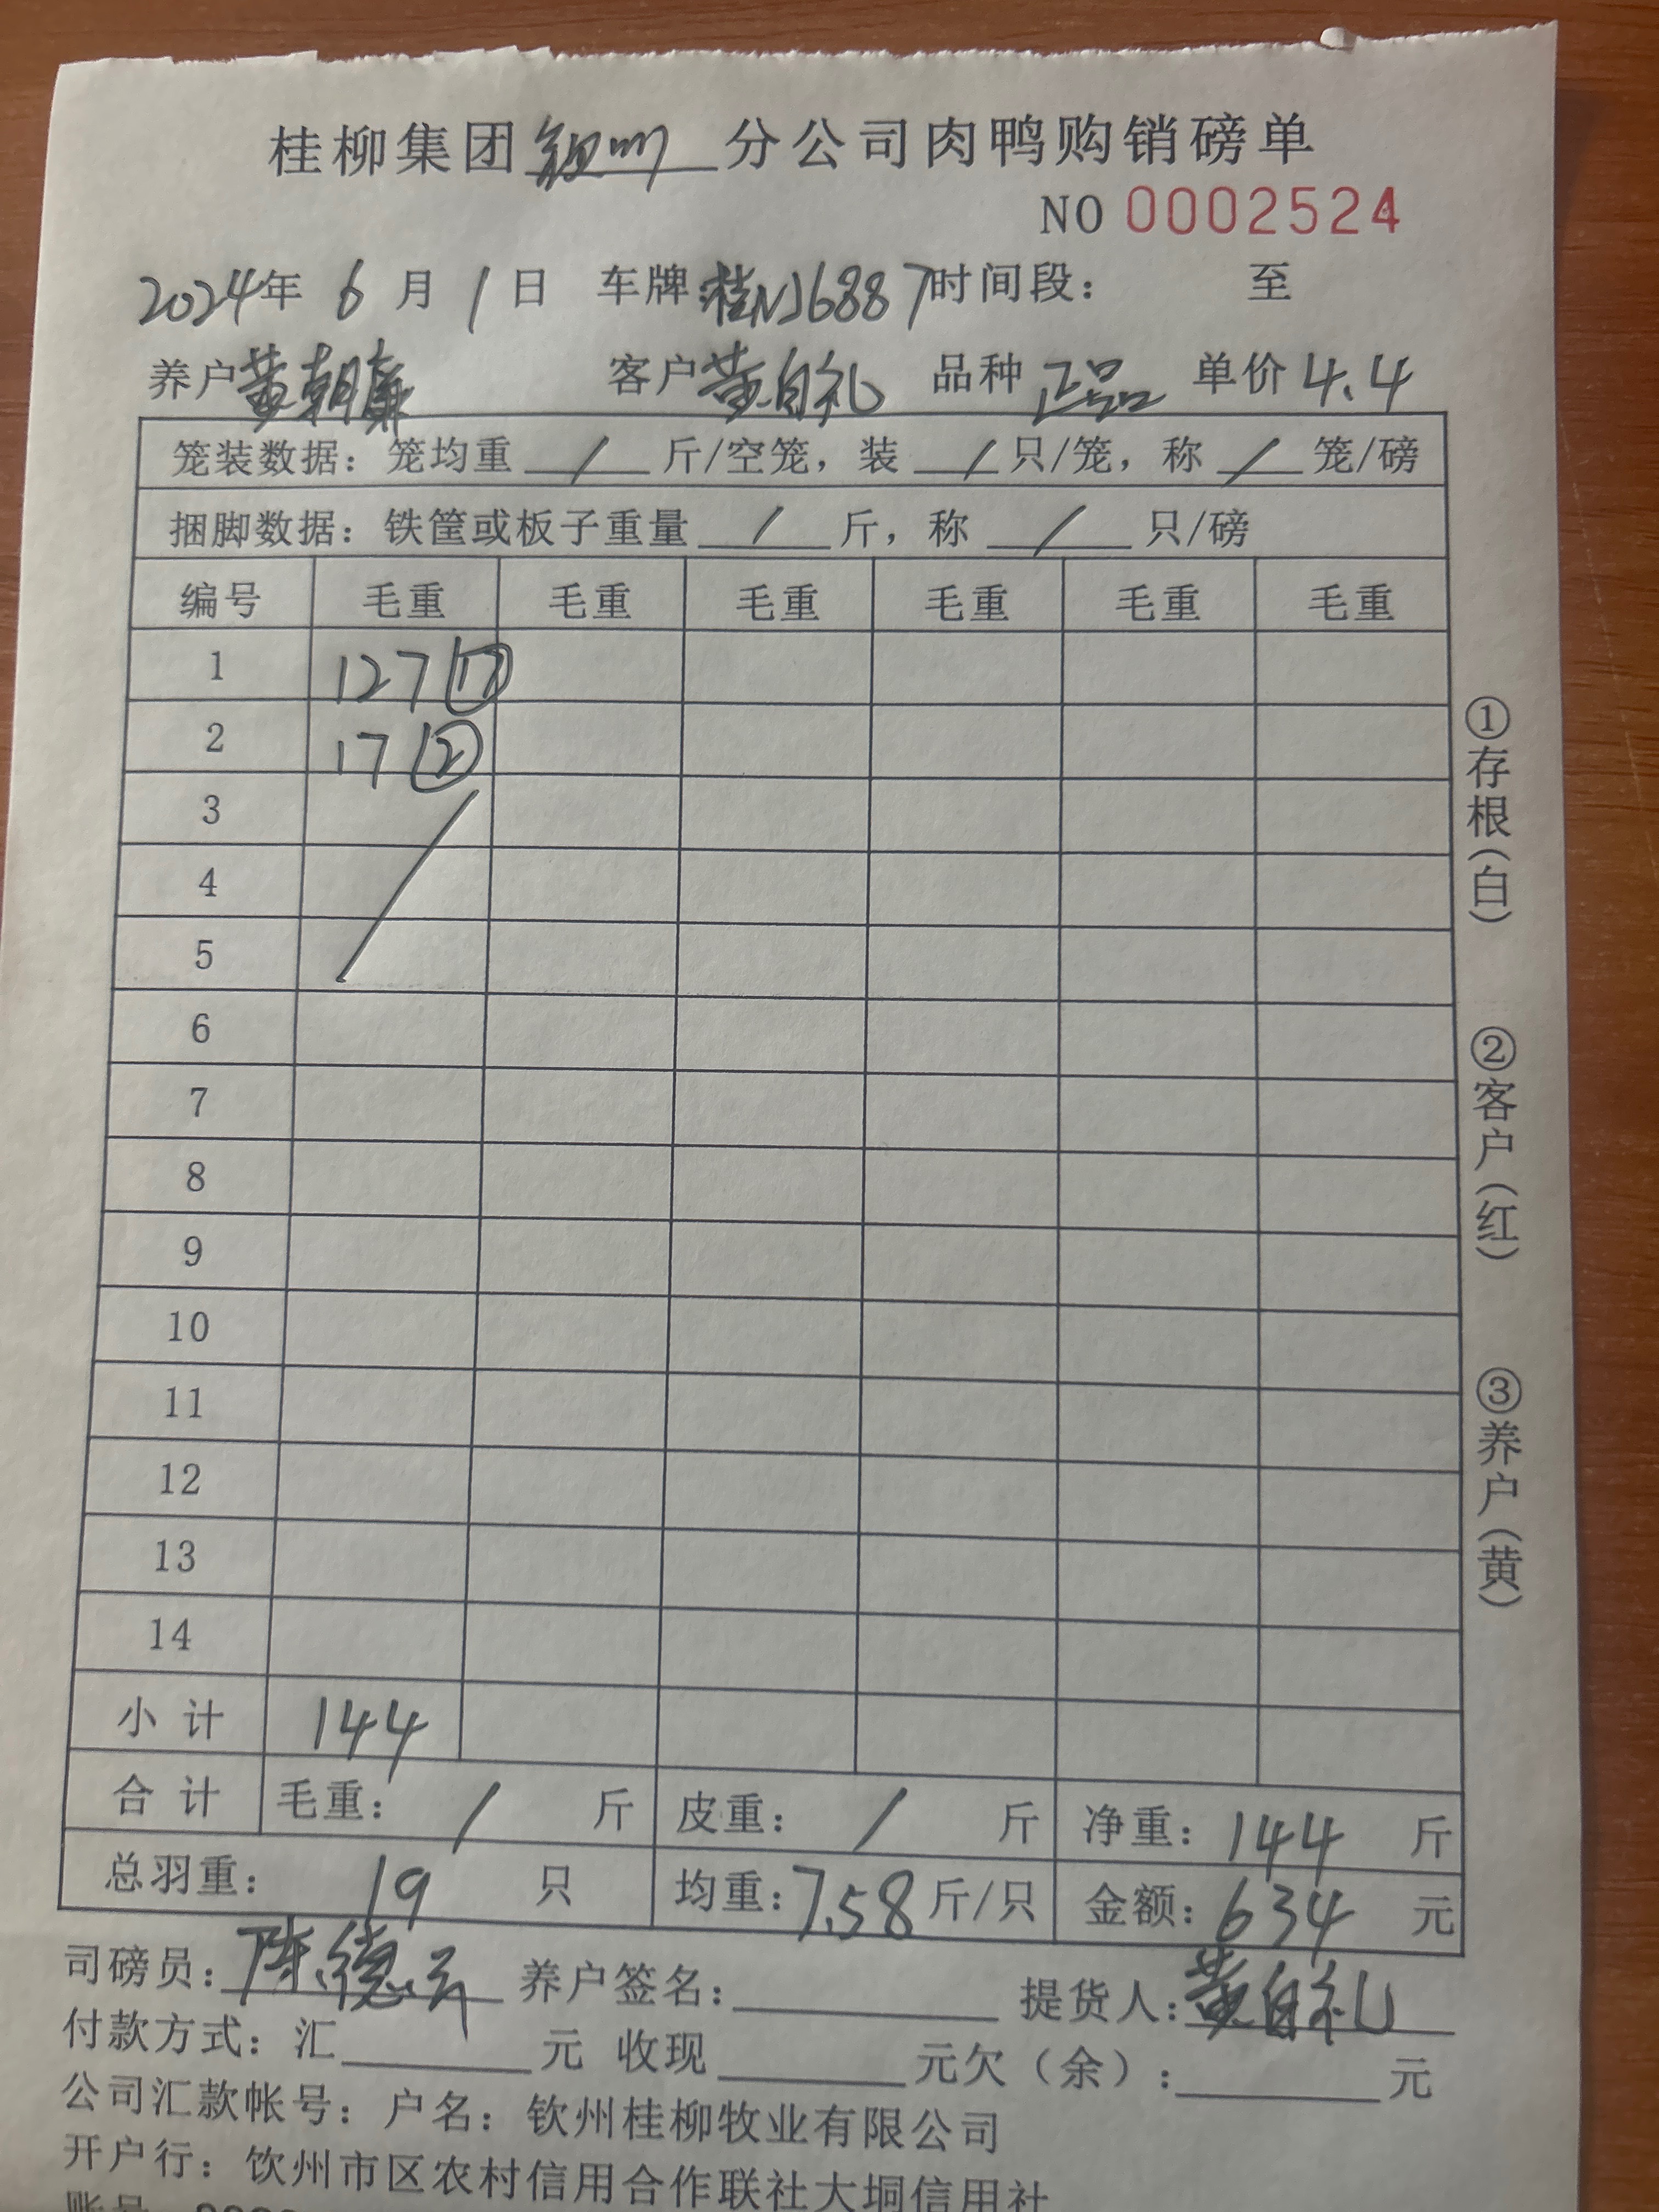 桂柳集团钦州分公司肉鸭购销磅单
NO 0002524
2024年 6 月 1 日 车牌:桂NJ6887 时间段: 至
养户 黄朝廉 客户 黄自礼 品种 正品 单价 4.4
笼装数据:笼均重 / 斤/空笼,装 / 只/笼,称 / 笼/磅
捆脚数据:铁筐或板子重量 / 斤,称 / 只/磅
编号 毛重 毛重 毛重 毛重 毛重 毛重
1 127 ⑰
2 17 ②
3
4
5
6
7
8
9
10
11
12
13
14
小计 144
合计 毛重: / 斤 皮重: / 斤 净重: 144 斤
总羽重: 19 只 均重: 7.58 斤/只 金额: 634 元
司磅员: 陈德云 养户签名: 提货人: 黄自礼
付款方式:汇 元 收现 元欠(余): 元
公司汇款帐号:户名:钦州桂柳牧业有限公司
开户行:钦州市区农村信用合作联社大垌信用社
①存根(白) ②客户(红) ③养户(黄)